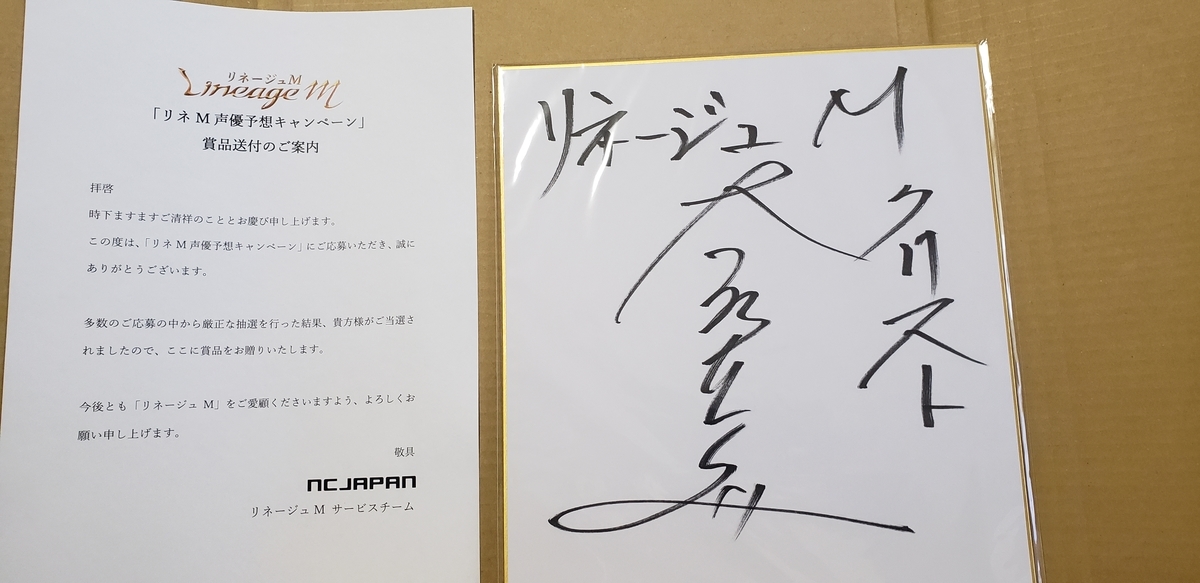 リネージュM
Lineage M
「リネ M 声優予想キャンペーン」
賞品送付のご案内
拝啓
時下ますますご清祥のこととお慶び申し上げます。
この度は、「リネ M 声優予想キャンペーン」にご応募いただき、誠に
ありがとうございます。
多数のご応募の中から厳正な抽選を行った結果、貴方様がご当選さ
れましたので、ここに賞品をお贈りいたします。
今後とも「リネージュ M」をご愛顧くださいますよう、よろしくお
願い申し上げます。
敬具
NCJAPAN
リネージュ M サービスチーム
リネージュ M
クリスト